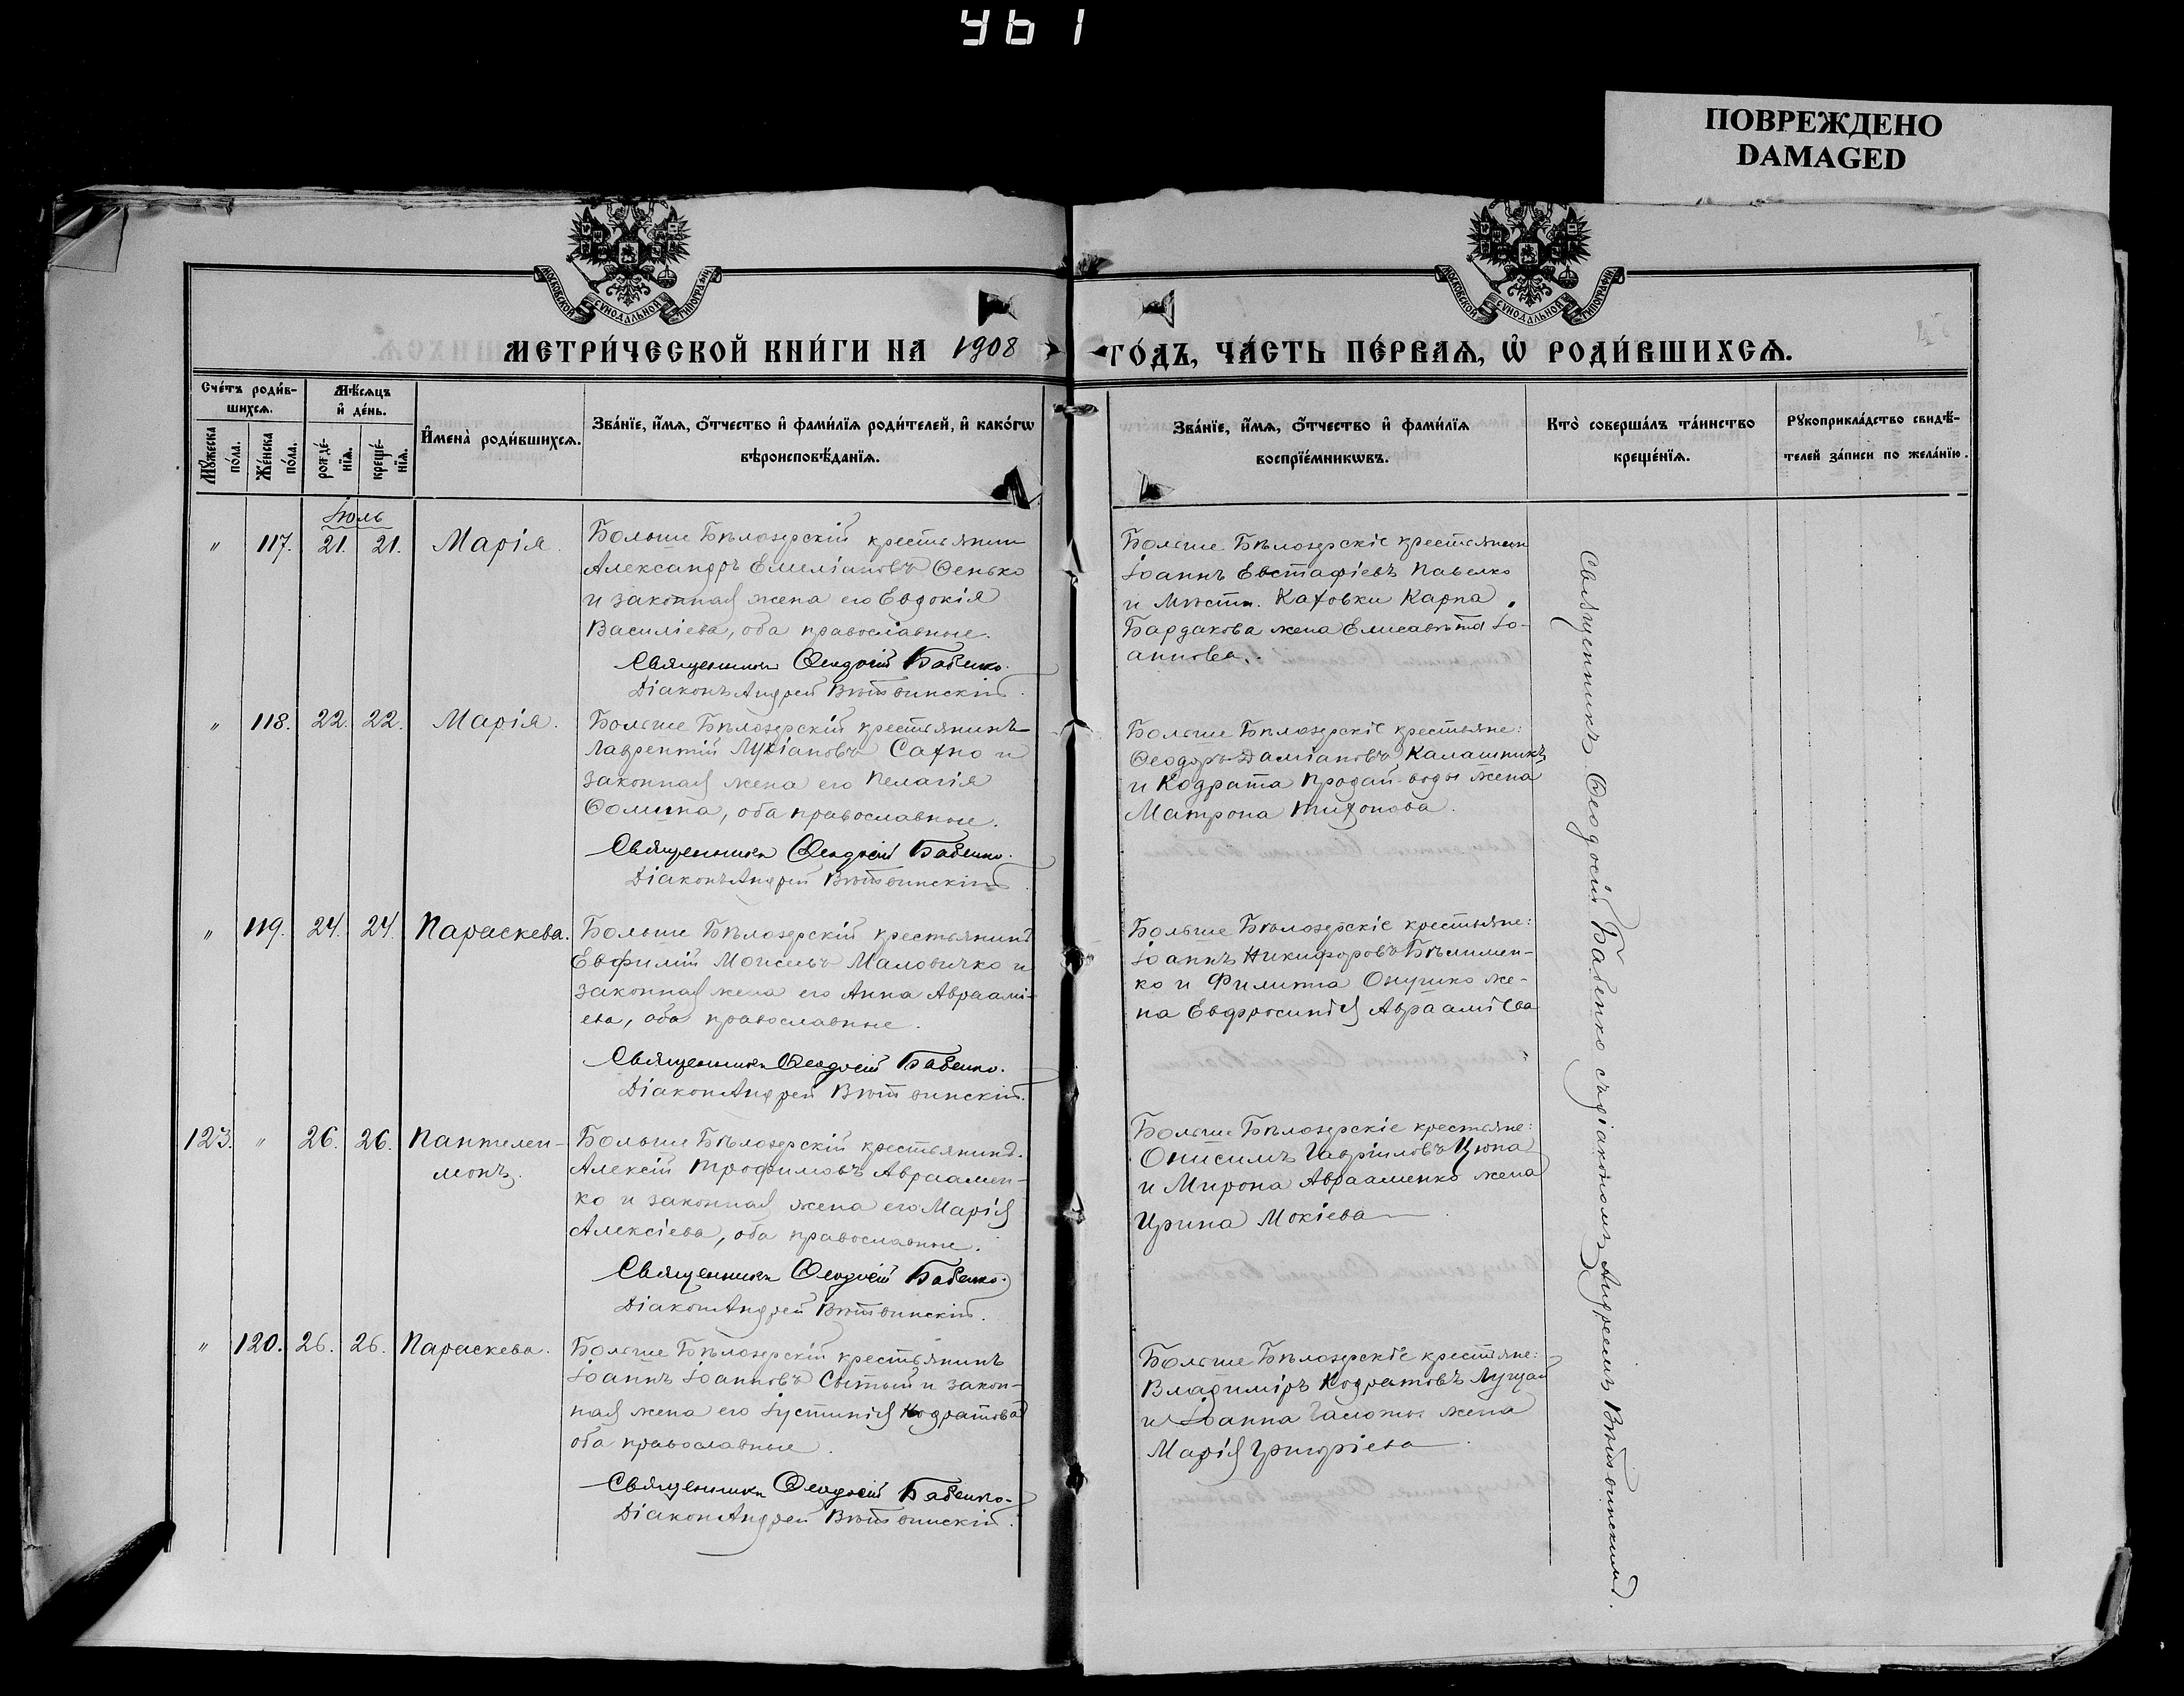 461
ПОВРЕЖДЕНО
DAMAGED
МОСКОВСКОЙ СѴНОДАЛЬНОЙ ТИПОГРАФІИ
МОСКОВСКОЙ СѴНОДАЛЬНОЙ ТИПОГРАФІИ
МЕТРИ́ЧЕСКОЙ КНИ́ГИ НА 1908 ГО́ДЪ, ЧА́СТЬ ПЕ́РВАѦ, Ѽ РОДИ́ВШИХСѦ.
Сче́тъ роди́в-
шихсѧ.
Мꙋ́жеска по́ла.
Же́нска по́ла.
Мѣ́сѧцъ
и҆ де́нь.
рожде́-
нїѧ.
креще́-
нїѧ.
И҆мена̀ роди́вшихсѧ.
Зва́нїе, и҆́мѧ, ѻ҆́тчество и҆ фами́лїѧ роди́телей, и҆ како́гѡ
вѣроисповѣ́данїѧ.
Зва́нїе, и҆́мѧ, ѻ҆́тчество и҆ фами́лїѧ
воспрїе́мникѡвъ.
Кто̀ соверша́лъ та́инство
креще́нїѧ.
Рꙋкоприкла́дство свидѣ́-
телей за́писи по жела́нїю.
Іюль
" 117. 21. 21. Марія.
Больше Бѣлозерскій крестьянин
Александръ Емеліановъ Ѳенько
и законная жена его Евдокія
Василіева, оба православные.
Священникъ Ѳеодосій Бабенко.
Діаконъ Андрей Вѣтвинскій.
Больше Бѣлозерскіе крестьянин
Іоаннъ Евстафіевъ Павелко
и мѣстн. Каховки Карпа
Бардакова жена Елисавета Іо-
аннова.
" 118. 22. 22. Марія.
Больше Бѣлозерскій крестьянинъ
Лаврентій Лукіановъ Сахно и
законная жена его Пелагія
Ѳомина, оба православные.
Священникъ Ѳеодосій Бабенко.
Діаконъ Андрей Вѣтвинскій
Больше Бѣлозерскіе крестьяне:
Ѳеодоръ Даміановъ Калашникъ
и Кодрата Продай-воды жена
Матрона Тихонова.
" 119. 24. 24 Параскева.
Больше Бѣлозерскій крестьянинъ
Евфимій Моисеевъ Маловичко и
законная жена его Анна Авраамі-
ева, оба православные.
Священникъ Ѳеодосій Бабенко.
Діаконъ Андрей Вѣтвинскій.
Больше Бѣлозерскіе крестьяне:
Іоаннъ Никифоровъ
ко и Филиппа Онушко же-
на Евфросинія Авраамієва
123. " 26. 26. Пантелеи-
монъ.
Больше Бѣлозерскій крестьянинъ.
Алексій Трофимовъ Авраамен-
ко и законная жена его Марія
Алексіева, оба православные.
Священникъ Ѳеодосій Бабенко.
Діаконъ Андрей Вѣтвинскій.
Больше Бѣлозерскіе крестьяне:
Онисимъ Гавріиловъ Цюпа
и Мирона Авраменко жена
Ирина Мокіева
" 120. 26. 26. Параскева.
Больше Бѣлозерскій крестьянинъ
Іоаннъ Іоанновъ Сытый и закон-
ная жена его Іустинія Кодратова
оба православные.
Священникъ Ѳеодосій Бабенко.
Діаконъ Андрей Вѣтвинскій.
Больше Бѣлозерскіе крестьяне:
Владиміръ Кодратовъ Лущай
и Іоанна жена
Марія Григоріева.
Священникъ Ѳеодосій Бабенко съ діакономъ Андреемъ Вѣтвинскимъ.